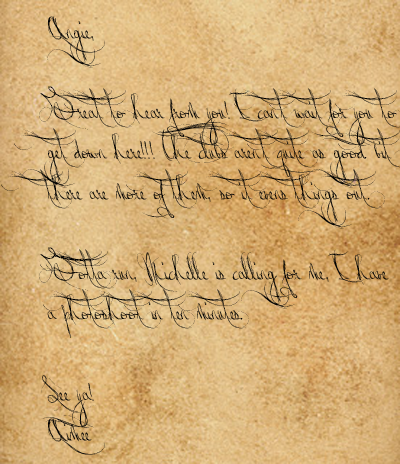 Angie,
Great to hear from you! I can't wait for you to
get down here!!! The clubs aren't quite as good but
there are more of them, so it evens things out.
Gotta run, Michelle is calling for me, I have
a photoshoot in ten minutes.
See ya!
Aimee